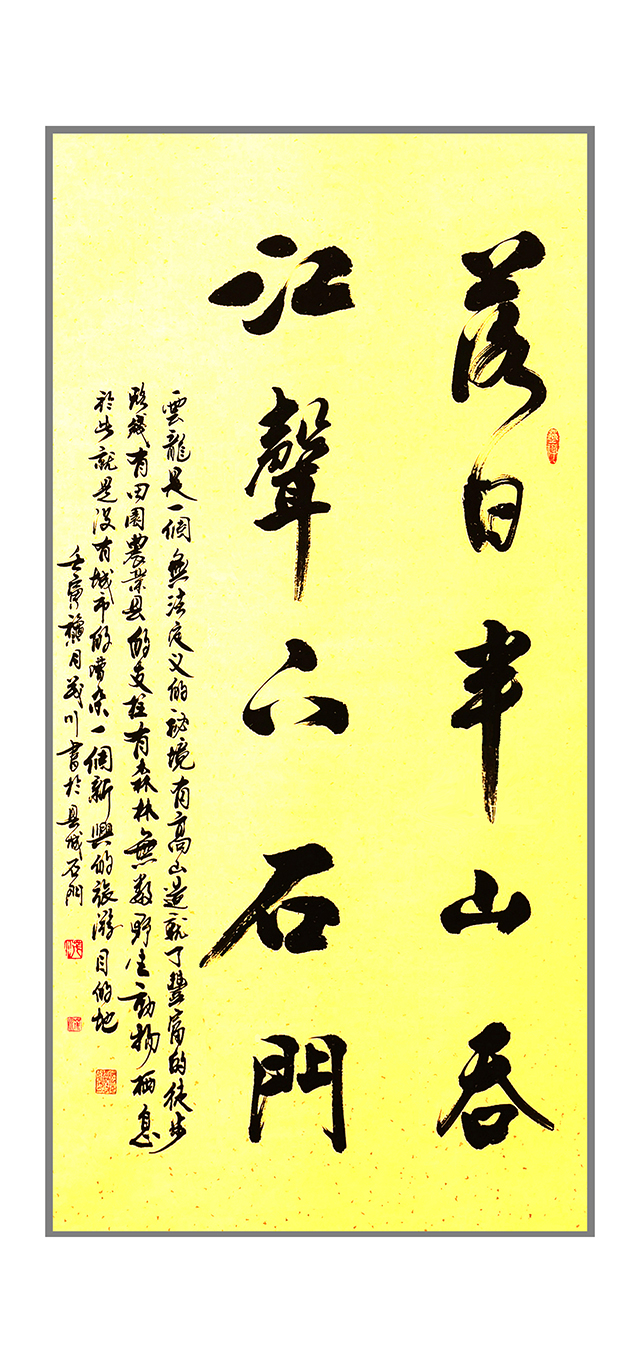 落日半山吞
江聲下石門
雲龍是一個無法定义的秘境有高山造就了豐富的徒步
路綫有田園農業县的支柱有森林無數野生動物栖息
於此就是没有城市的嘈杂一個新興的旅游目的地
壬寅臘月茂川書於县城石門